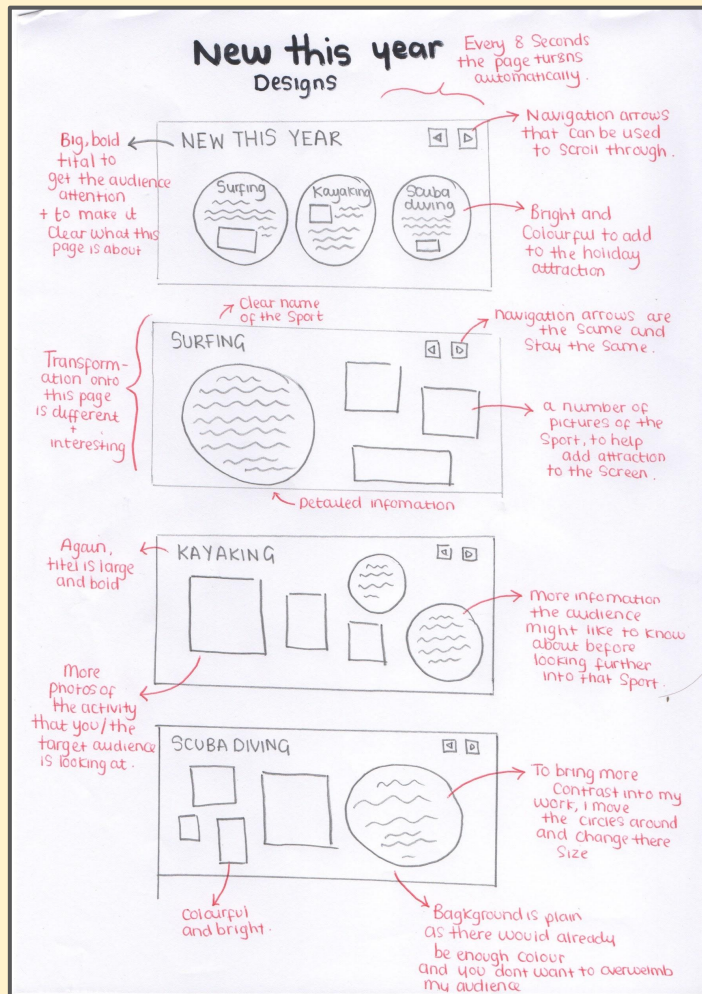 New this year
Designs
Every 8 Seconds
the page tursns
automatically.
Big, bold
tital to
get the audience
attention
+ to make it
Clear what this
page is about
NEW THIS YEAR
Navigation arrows
that can be used
to scroll through.
Surfing
Kayaking
Scuba
diving
Bright and
Colourful to add
to the holiday
attraction
Clear name
of the Sport
SURFING
navigation arrows are
the same and
Stay the same.
Transform-
ation onto
this page
is different
+
interesting
a number of
pictures of the
Sport, to help
add attraction
to the Screen.
Detailed infomation
Again,
titel is large
and bold
KAYAKING
More infomation
the audience
might like to know
about before
looking further
into that Sport.
More
photos of
the activity
that you/the
target audience
is looking at.
SCUBA DIVING
To bring more
Contrast into my
work, I move
the circles around
and change there
Size
Colourful
and bright.
Bagkground is plain
as there would already
be enough colour
and you dont want to overwelmb
my audience